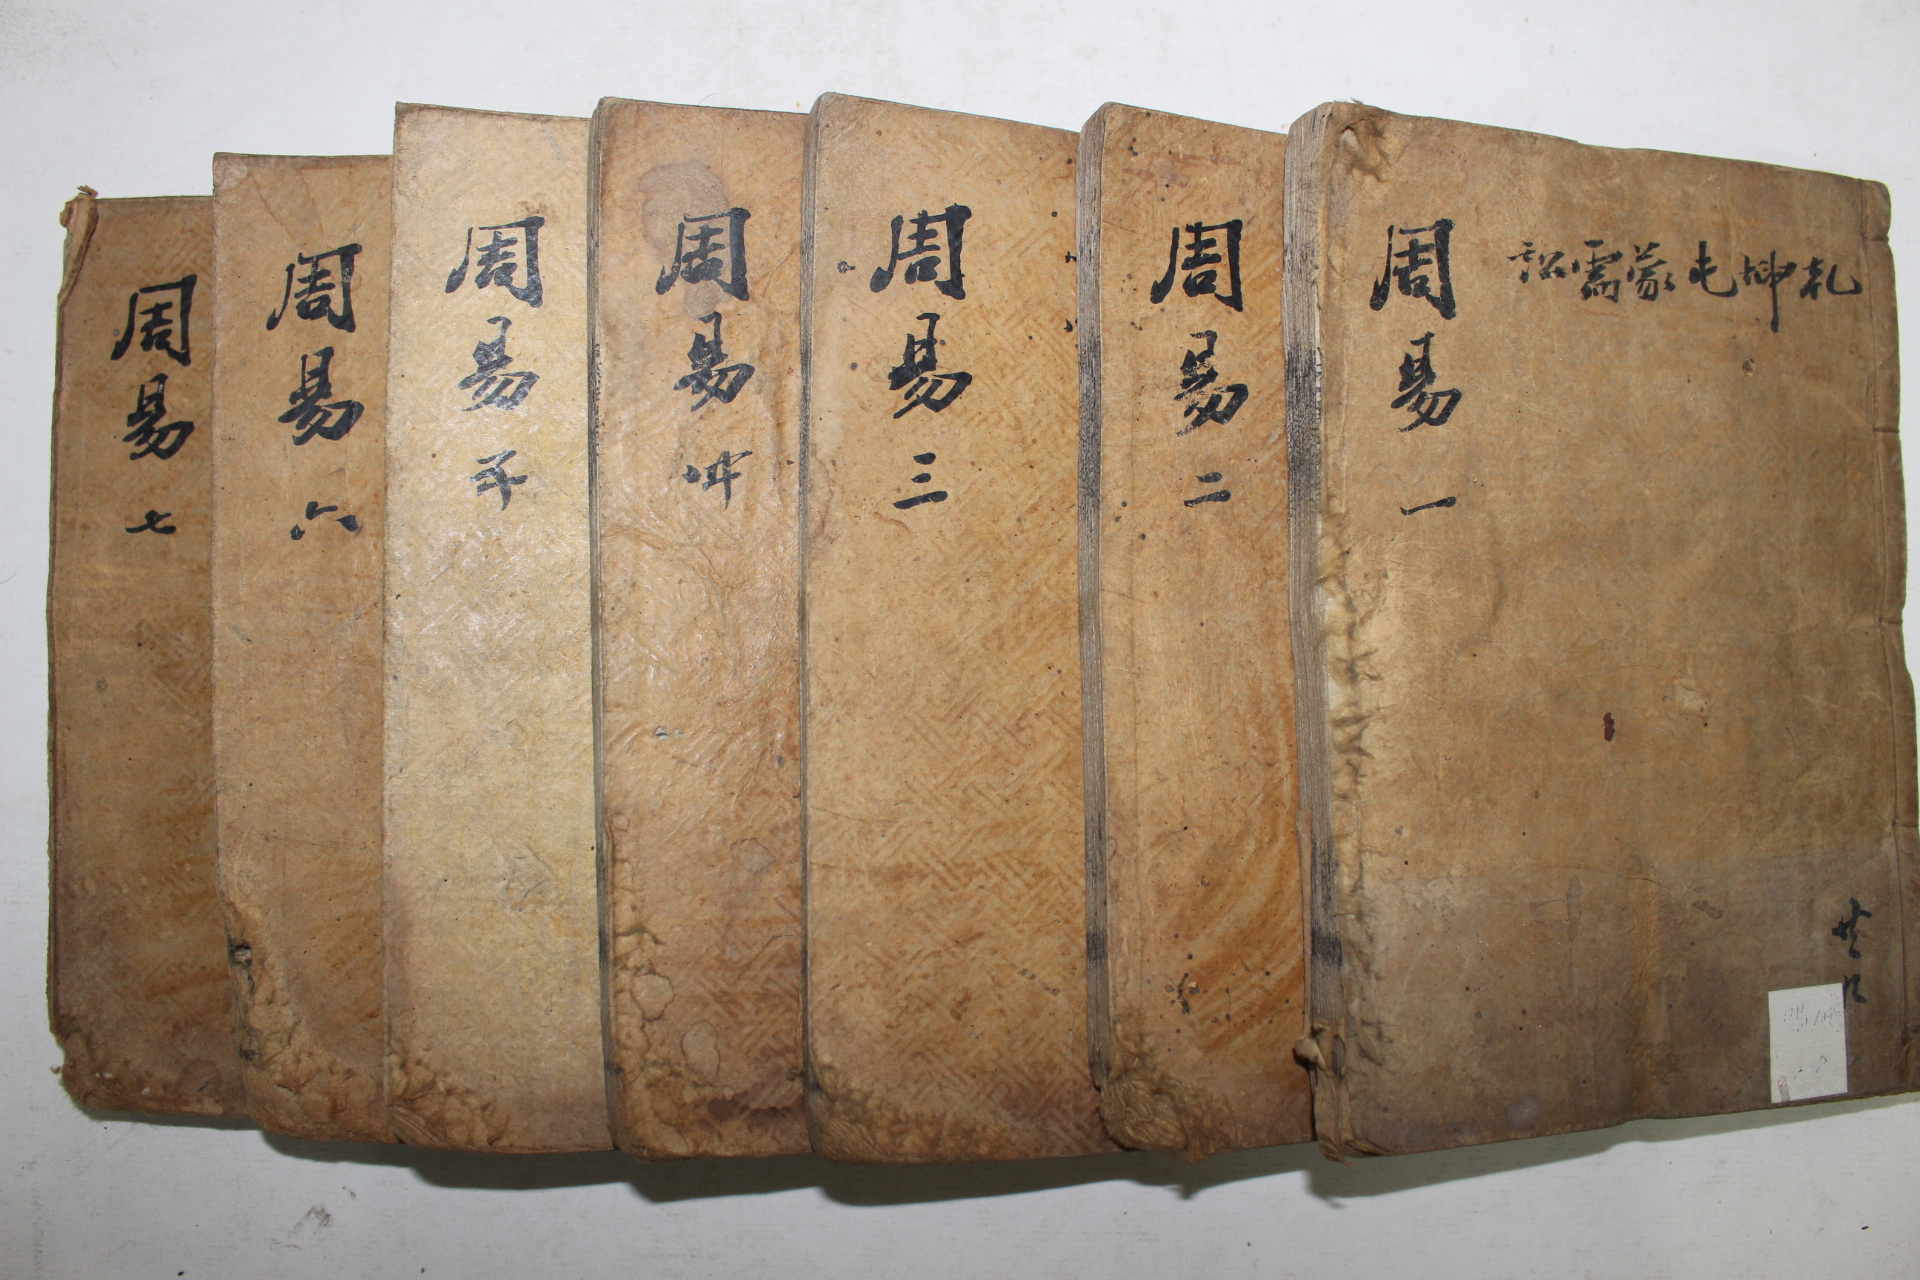 乾坤屯蒙需訟
周易一
周易二
周易三
周易
周易五
周易六
周易七